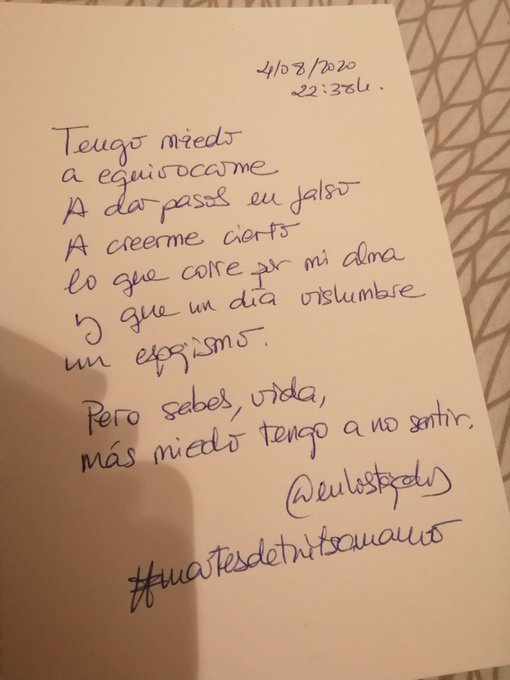 4/08/2020
22:38h.
Tengo miedo
a equivocarme
A dar pasos en falso
A creerme cierto
lo que corre por mi alma
y que un día vislumbre
un espejismo.
Pero sabes, vida,
más miedo tengo a no sentir.
#martesdetuitsamano